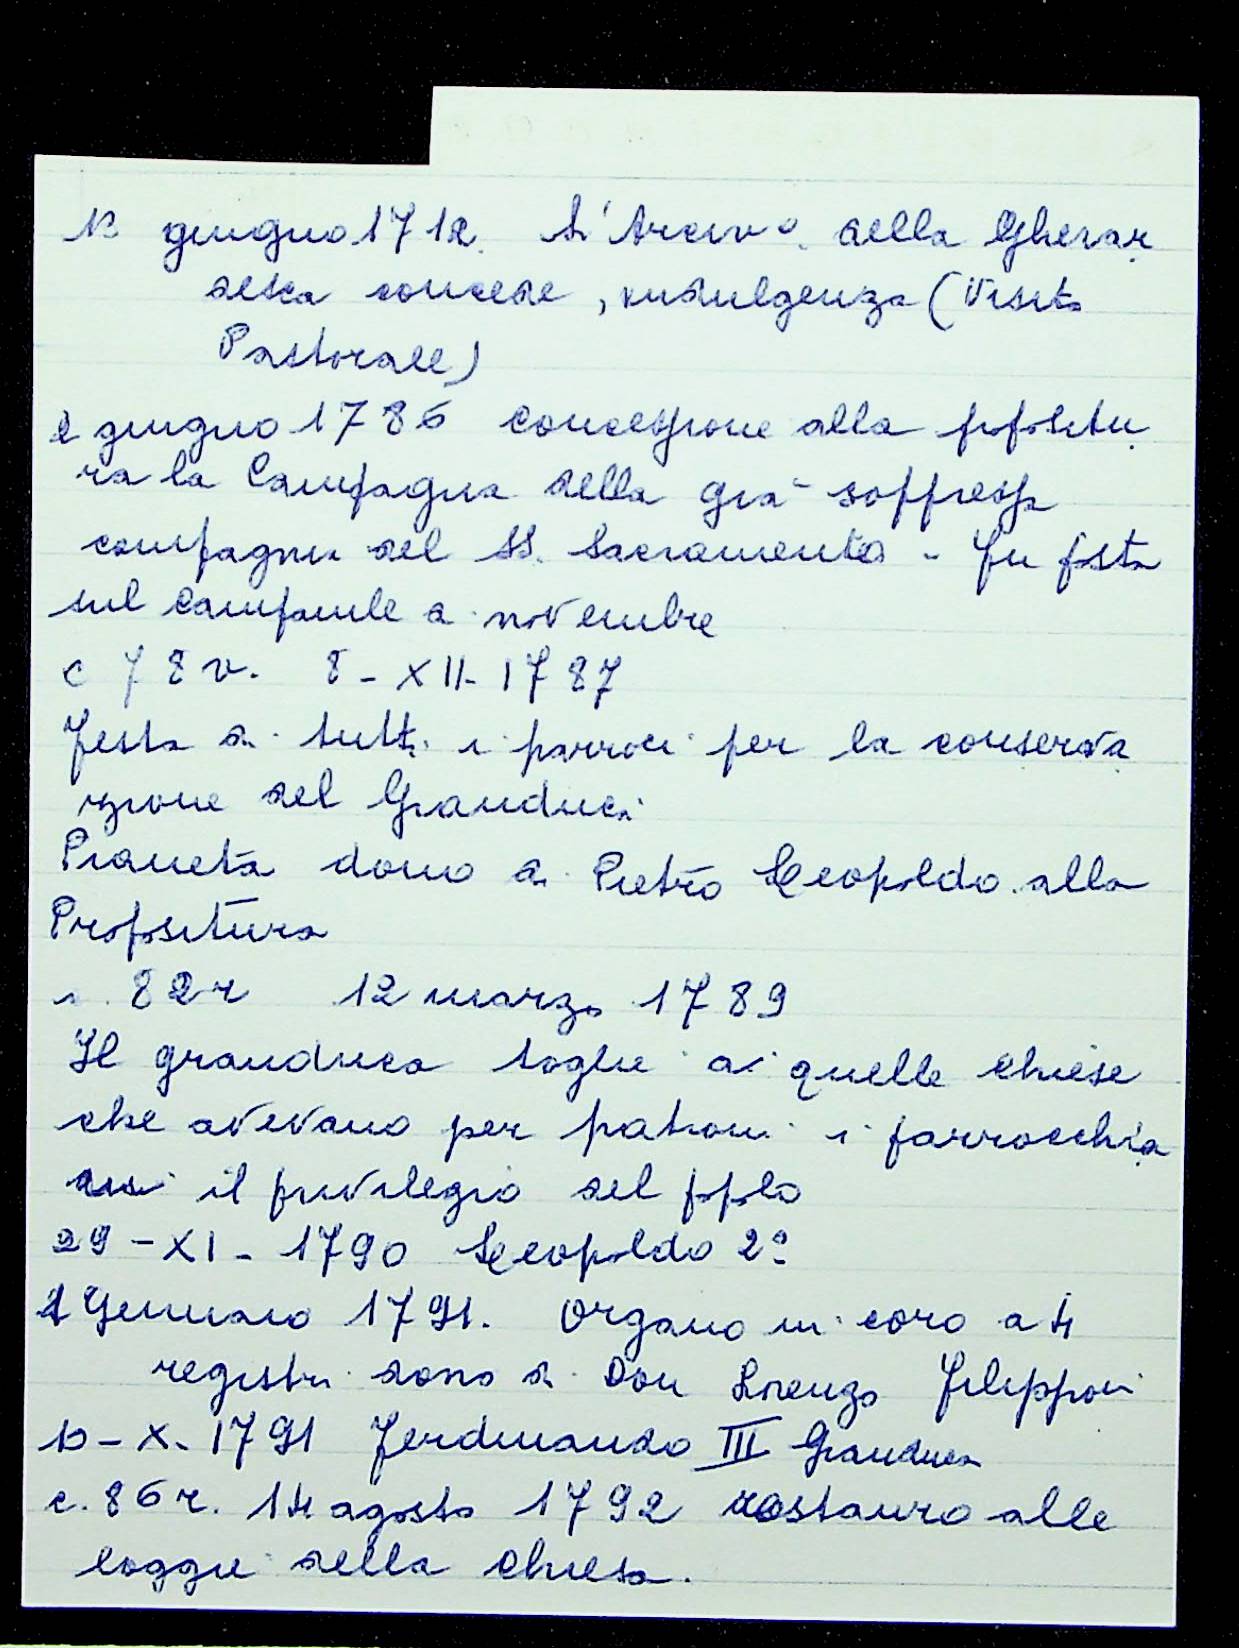 13 giugno 1712. L'Arciv.o della Gherar
desca concede, indulgenza (Visita
Pastorale)
2 giugno 1786 concessione alla propositu
ra la Campagna della già soppressa
compagnia del SS. Sacramento - fu posta
sul campanile a novembre
c 78v. 8-XII-1787
Festa di tutti i parroci per la conserva
zione del Granduca
Pianeta dono di Pietro Leopoldo alla
Propositura
c. 82r 12 marzo 1789
Il granduca toglie a quelle chiese
che avevano per patroni i parrocchia
ni il privilegio del popolo
29-XI-1790 Leopoldo 2º
1 Gennaio 1791. Organo in coro a 4
registri dono di Don Lorenzo Filipponi
10-X-1791 Ferdinando III Granduca
c. 86r. 14 agosto 1792 restauro alle
logge della chiesa.